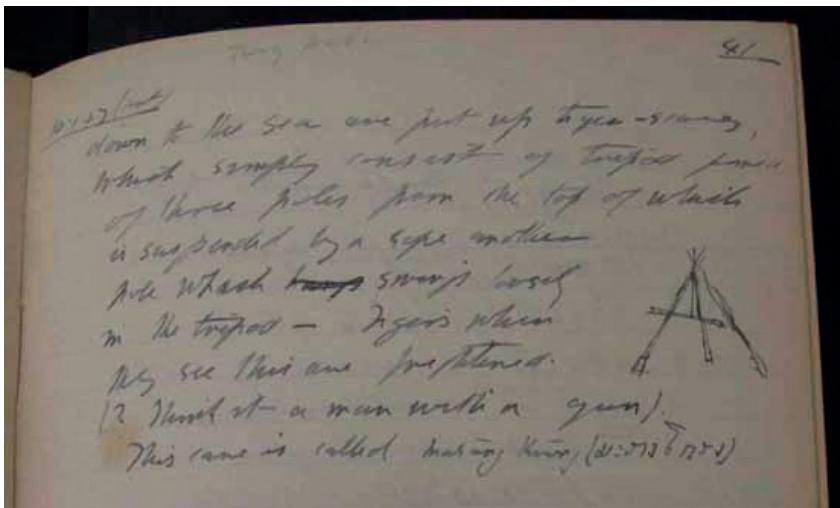 41
down to the sea are put up tiger-scarers,
which simply consist of tripod
of three poles from the top of which
is suspended by a rope another
pole which swings loosely
in the tripod — Tigers when
they see this are frightened.
(? Think it a man with a gun).
This cane is called